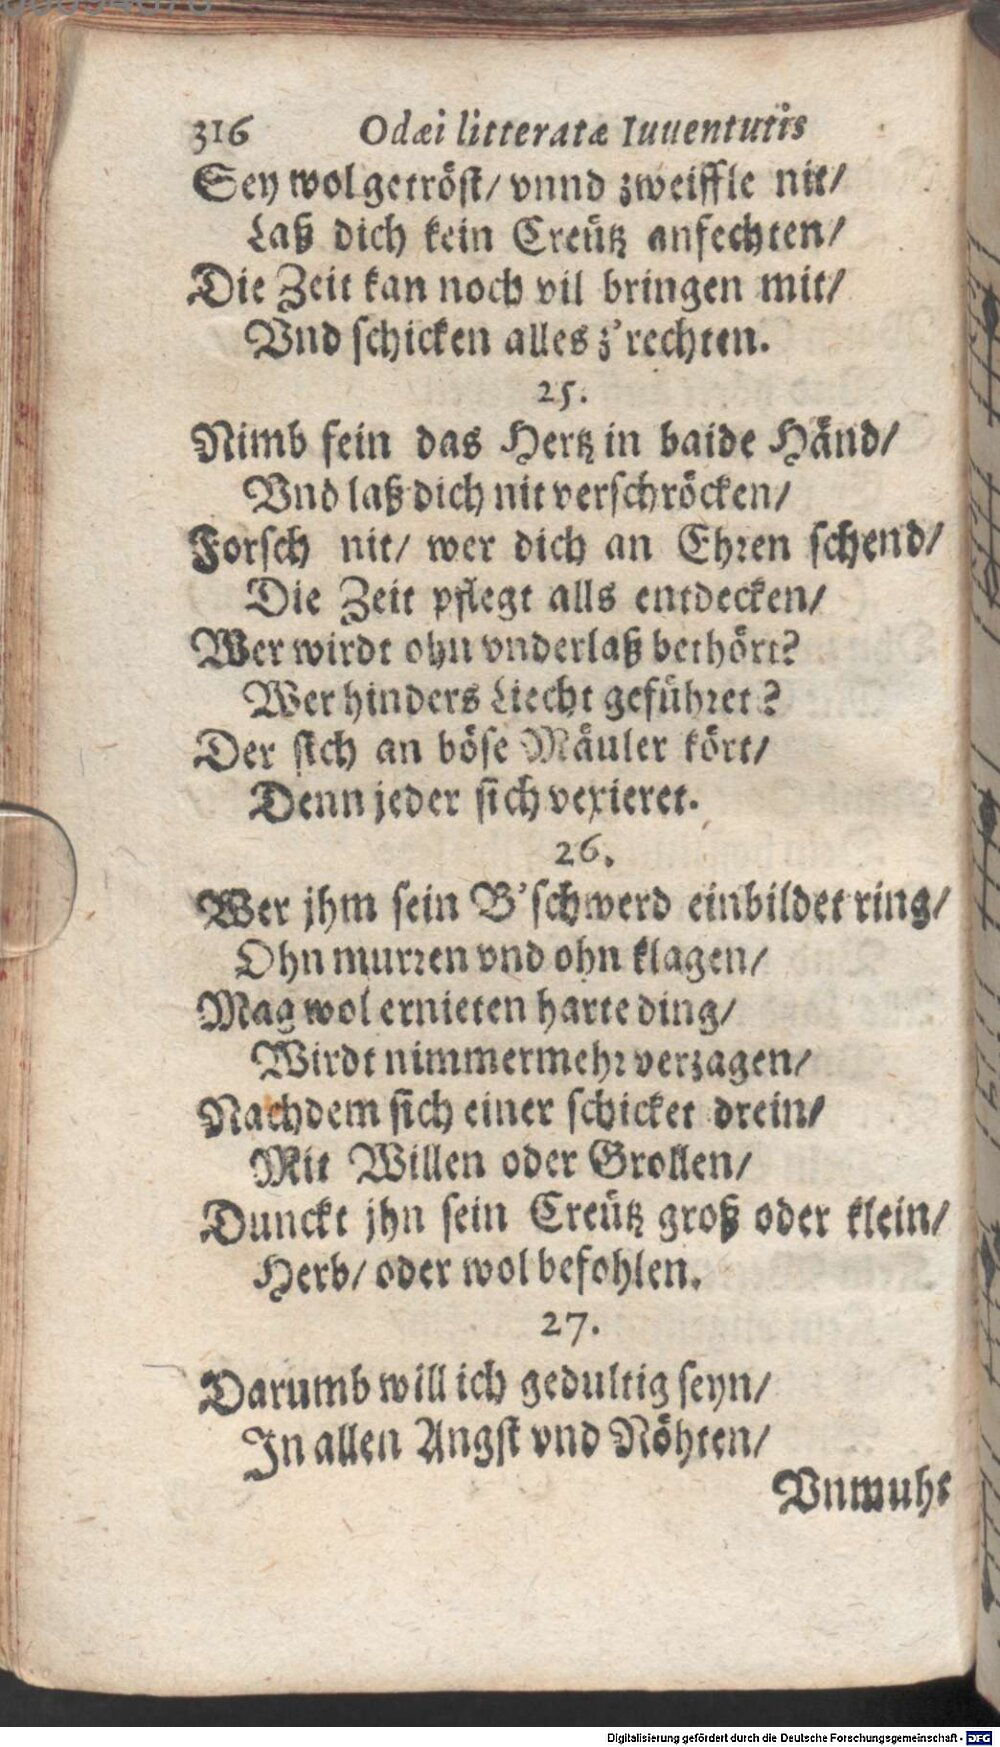 316 Odæi litteratæ Iuuentutis
Sey wol getröst/ vnnd zweiffle nit/
Laß dich kein Creütz anfechten/
Die Zeit kan noch vil bringen mit/
Vnd schicken alles z'rechten.
25.
Nimb fein das Hertz in baide Händ/
Vnd laß dich nit verschröcken/
Forsch nit/ wer dich an Ehren schend/
Die Zeit pflegt alls entdecken/
Wer wirdt ohn vnderlaß bethört?
Wer hinders Liecht geführet?
Der sich an böse Mäuler kört/
Denn jeder sich vexieret.
26.
Wer jhm sein B'schwerd einbildet ring/
Ohn murren vnd ohn klagen/
Mag wol ernieten harte ding/
Wirdt nimmermehr verzagen/
Nachdem sich einer schicket drein/
Mit Willen oder Grollen/
Dunckt jhn sein Creütz groß oder klein/
Herb/ oder wol befohlen.
27.
Darumb will ich gedultig seyn/
In allen Angst vnd Nöhten/
Vnmuht
Digitalisierung gefördert durch die Deutsche Forschungsgemeinschaft - DFG